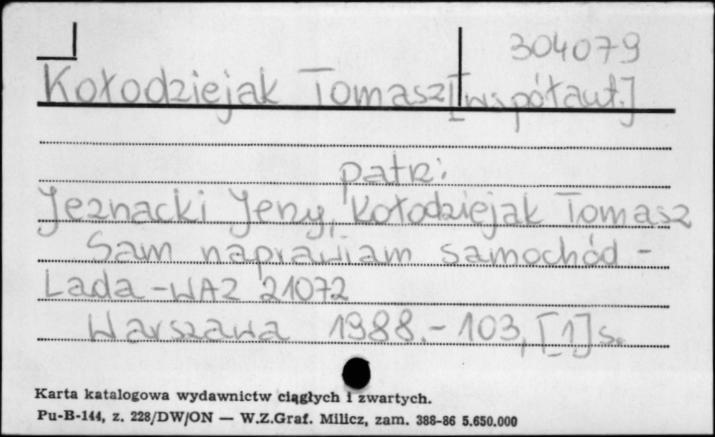 304079
Kołodziejak Tomasz [współaut.]
patrz:
Jeznacki Jerzy, Kołodziejak Tomasz
Sam naprawiam samochód -
Lada-WAZ 21072
Warszawa 1988.- 103, [1] s.
Karta katalogowa wydawnictw ciągłych i zwartych.
Pu-B-144, z. 228/DW/ON — W.Z.Graf. Milicz, zam. 388-86 5.650.000